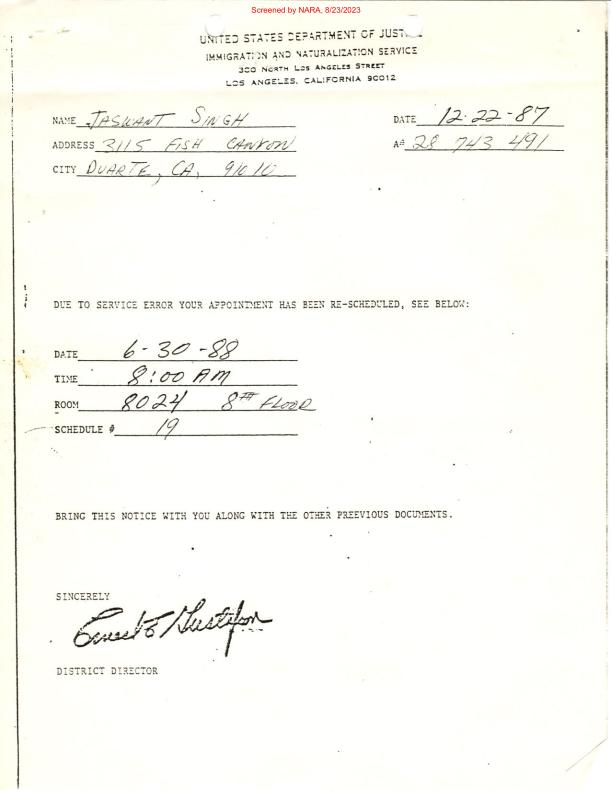 Screened by NARA, 8/23/2023
UNITED STATES DEPARTMENT OF JUST
IMMIGRATION AND NATURALIZATION SERVICE
300 NORTH LOS ANGELES STREET
LOS ANGELES, CALIFORNIA 90012
NAME JASWANT SINGH DATE 12-22-87
ADDRESS 3115 FISH CANYON A# 28 743 491
CITY DUARTE, CA, 91010
DUE TO SERVICE ERROR YOUR APPOINTMENT HAS BEEN RE-SCHEDULED, SEE BELOW:
DATE 6-30-88
TIME 8:00 AM
ROOM 8024 8TH FLOOR
SCHEDULE # 19
BRING THIS NOTICE WITH YOU ALONG WITH THE OTHER PREEVIOUS DOCUMENTS.
SINCERELY
Ernest E Gustafson
DISTRICT DIRECTOR